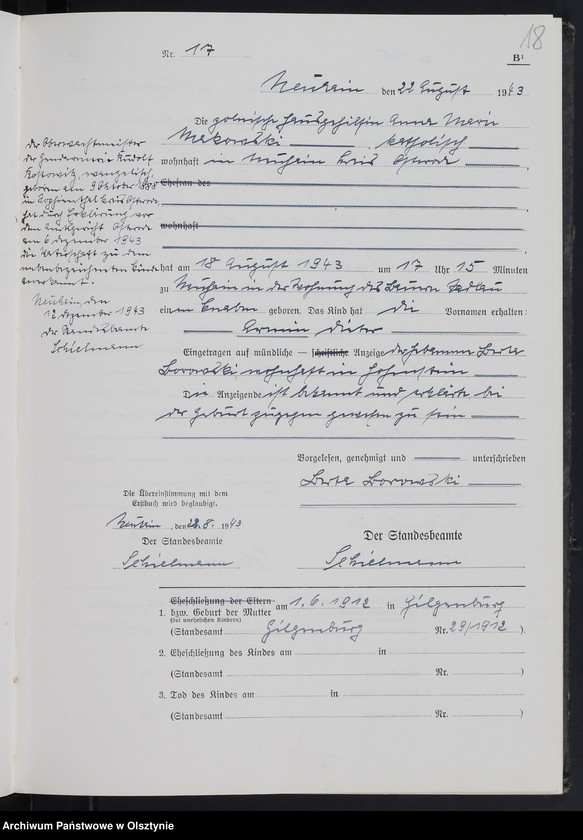 18
Nr. 17
B¹
den 22 August 1943
Die polnische Hausgehilfin Anna Marie
Makowski, katholisch
wohnhaft in Kreis Osterode
Ehefrau des
wohnhaft
hat am 18 August 1943 um 17 Uhr 15 Minuten
zu in der Wohnung des Bauern
einen Knaben geboren. Das Kind hat die Vornamen erhalten:
Armin Dieter
Eingetragen auf mündliche — schriftliche Anzeige der Hebamme Berta
Borowski wohnhaft in Hohenstein
Die Anzeigende ist bekannt und erklärte bei
der Geburt zugegen gewesen zu sein
Vorgelesen, genehmigt und unterschrieben
Berta Borowski
Die Übereinstimmung mit dem
Erstbuch wird beglaubigt.
den 22.8. 1943
Der Standesbeamte
Schielmann
Der Standesbeamte
Schielmann
der Oberwachtmeister
der Gendarmerie Rudolf
evangelisch,
geboren am 9 Oktober
in Kreis Osterode,
hat durch Erklärung vor
dem Amtsgericht Osterode
am 6 Dezember 1943
die Vaterschaft zu dem
nebenbezeichneten Kinde
anerkannt.
den
12 Dezember 1943
Der Standesbeamte
Schielmann
Eheschließung der Eltern
1. bzw. Geburt der Mutter am 1.6.1912 in Gilgenburg
(bei unehelichen Kindern)
(Standesamt Gilgenburg Nr. 29/1912)
2. Eheschließung des Kindes am in
(Standesamt Nr. )
3. Tod des Kindes am in
(Standesamt Nr. )
Archiwum Państwowe w Olsztynie